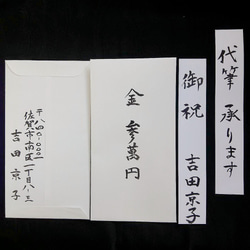 代筆 承ります
御祝 吉田京子
金 参萬円
〒八四〇-〇〇〇二
佐賀市南区一丁目八-三
吉田京子